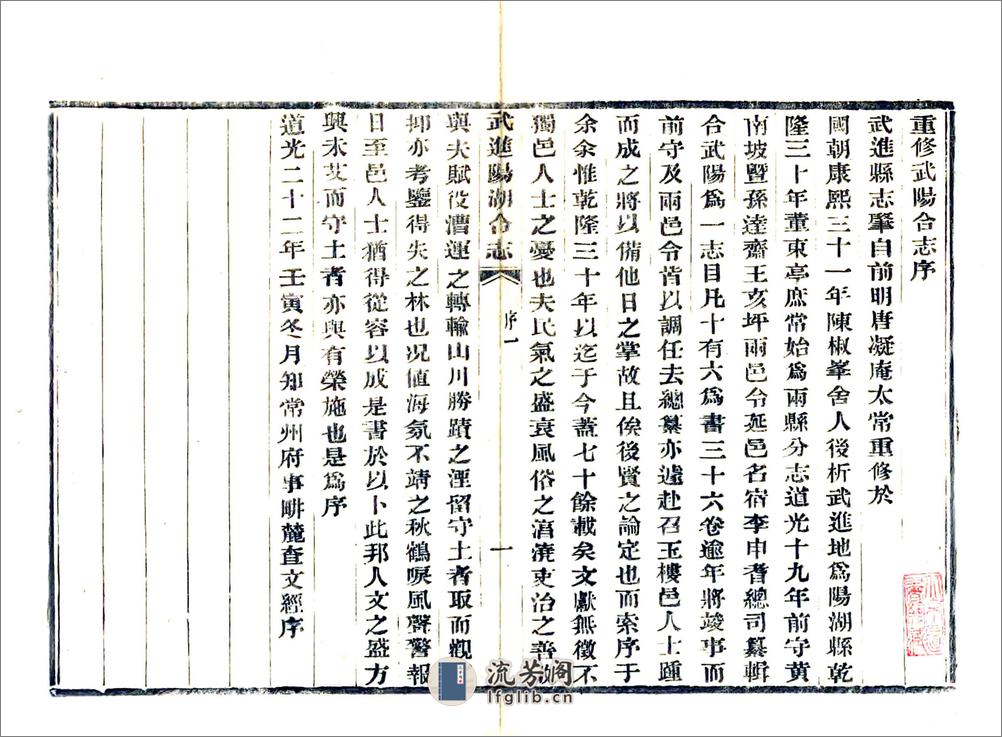 重修武陽合志序
武進縣志肇自前明唐凝庵太常重修於
國朝康熙三十一年陳椒峯舍人後析武進地爲陽湖縣乾
隆三十年董東亭庶常始爲兩縣分志道光十九年前守黃
南坡暨孫達齋王亥坪兩邑令延邑名宿李申耆總司纂輯
合武陽爲一志目凡十有六爲書三十六卷逾年將竣事而
前守及兩邑令皆以調任去總纂亦遽赴召玉樓邑人士踵
而成之將以備他日之掌故且俟後賢之論定也而索序于
余余惟乾隆三十年以迄于今蓋七十餘載矣文獻無徵不
獨邑人士之憂也夫民氣之盛衰風俗之淳澆吏治之善
武進陽湖合志 序一 一
與夫賦役漕運之轉輸山川勝蹟之湮留守土者取而觀
抑亦考鑒得失之林也况值海氛不靖之秋鶴唳風聲警報
日至邑人士猶得從容以成是書於以卜此邦人文之盛方
興未艾而守土者亦與有榮施也是爲序
道光二十二年壬寅冬月知常州府事畊麓查文經序
流芳阁
lfglib.cn